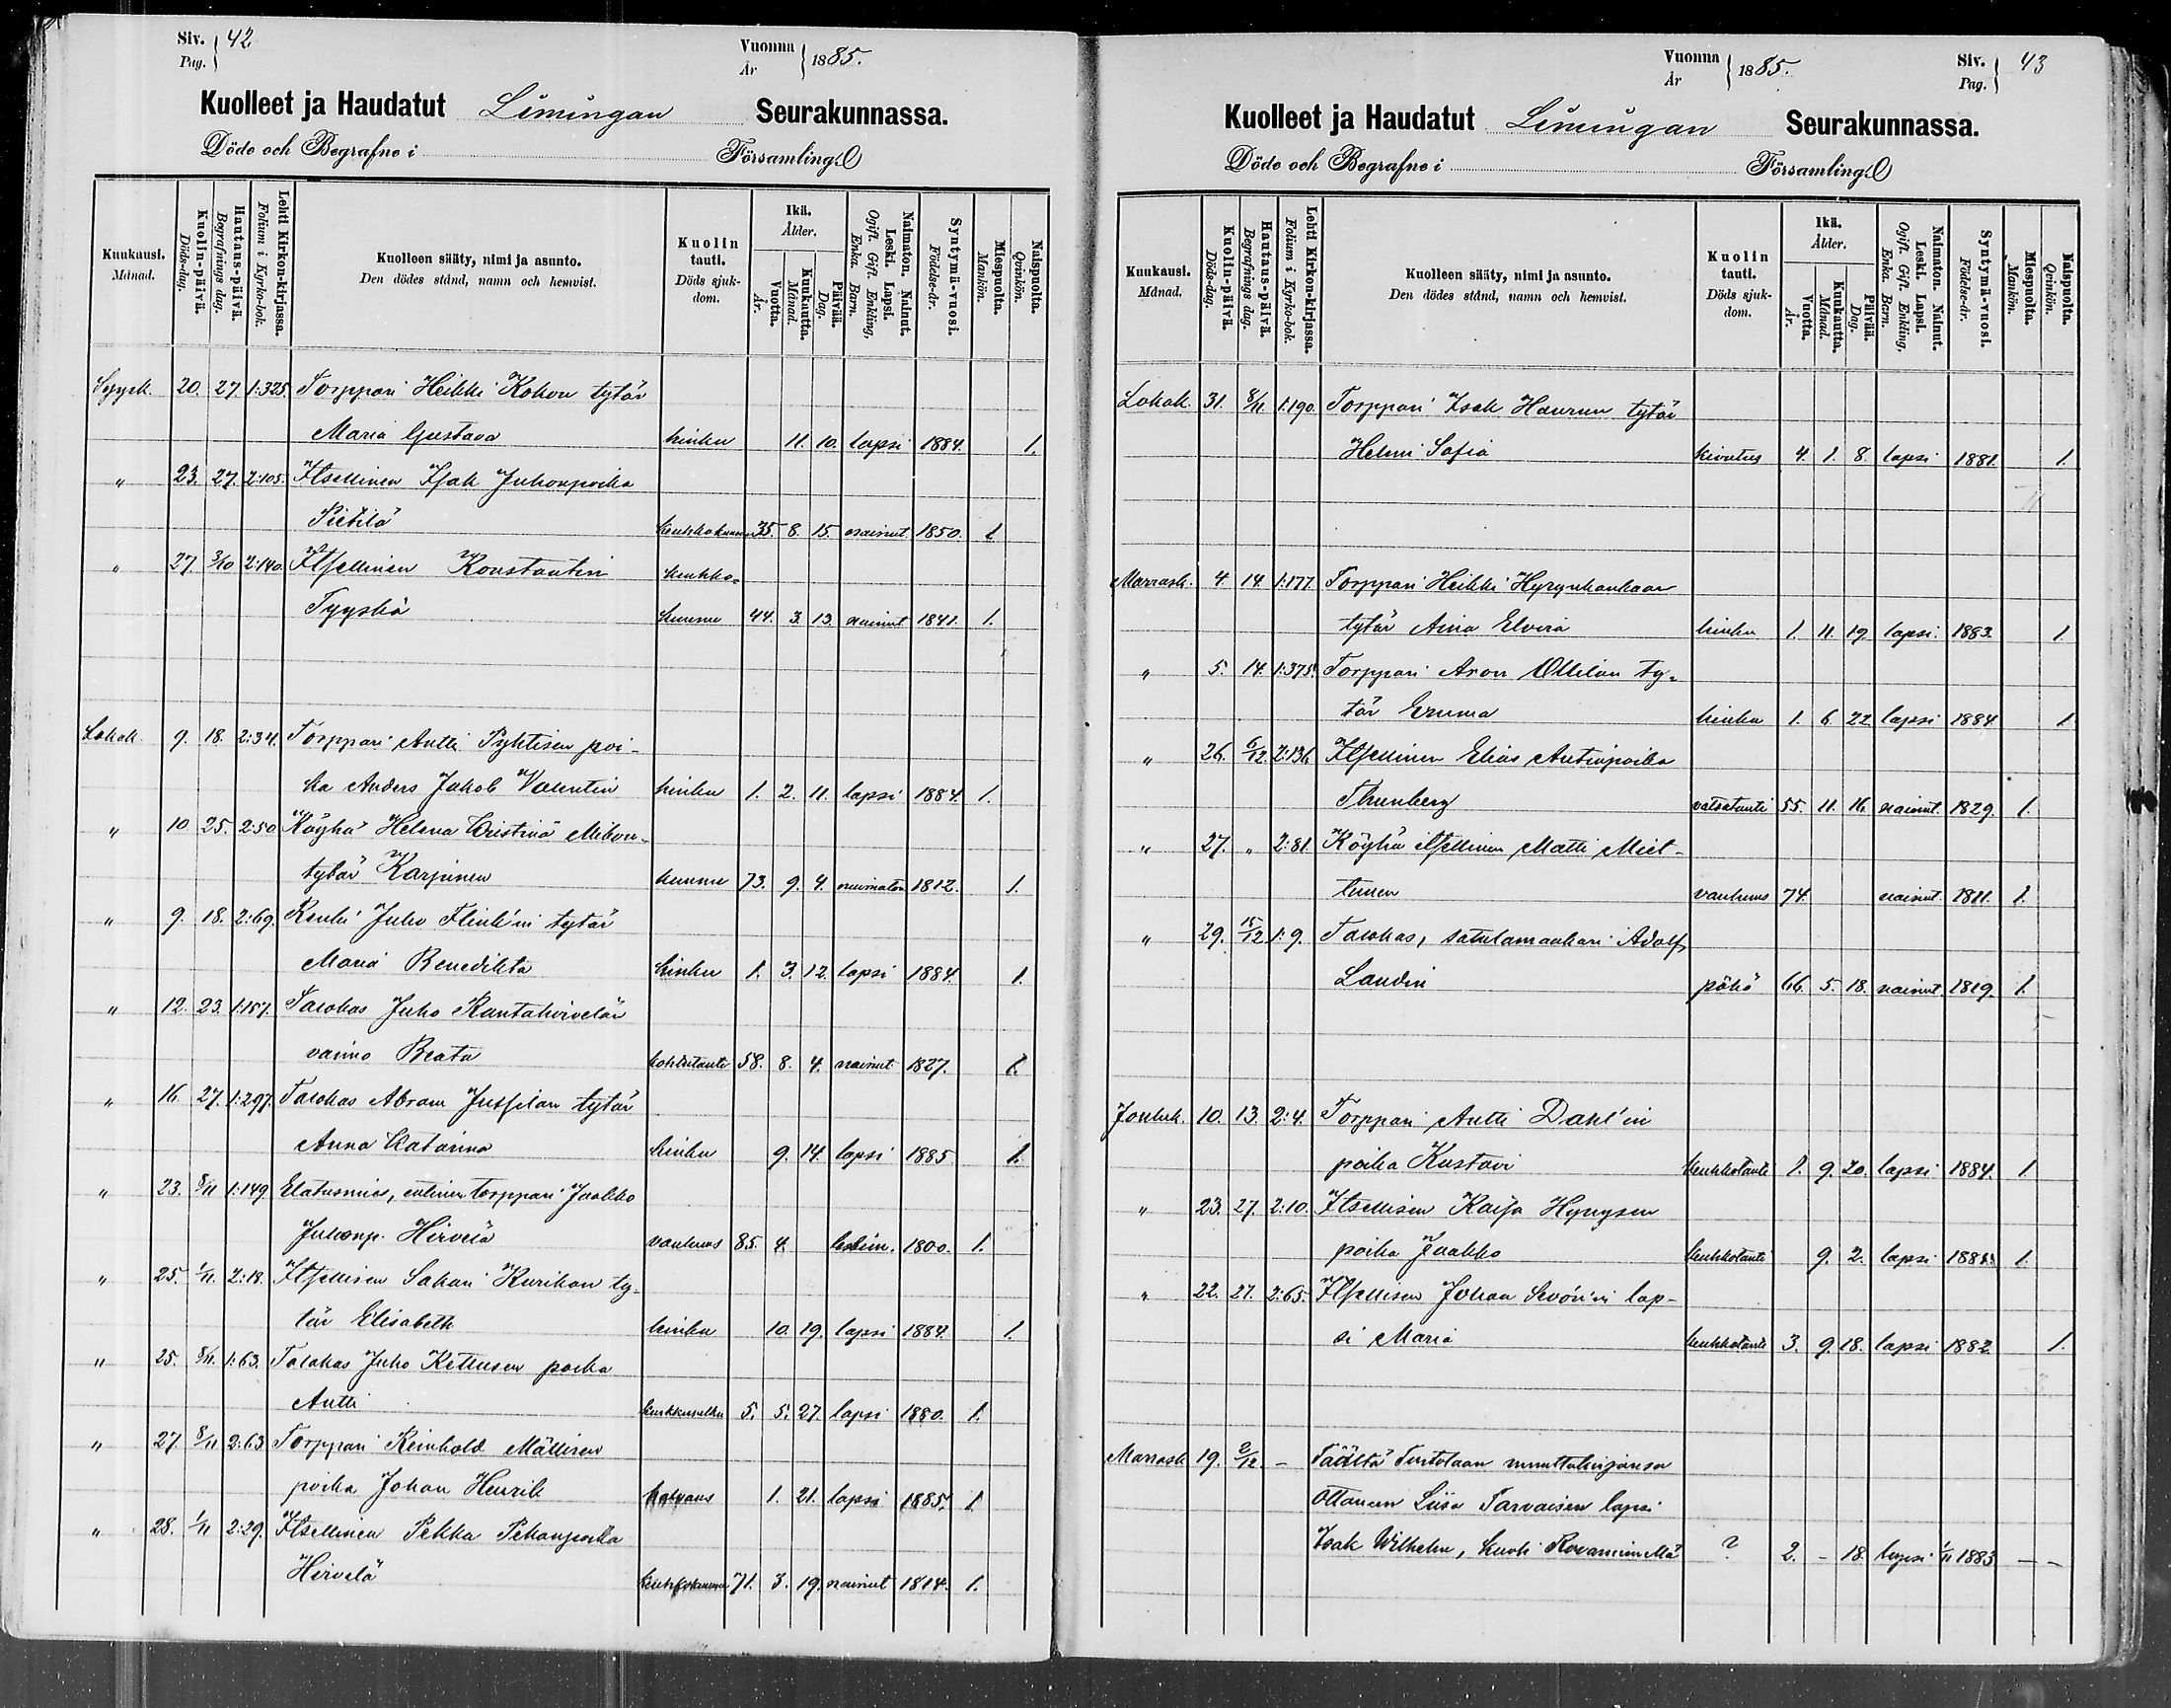 Siv. Pag. 42 Vuonna År 1885.
Kuolleet ja Haudatut Limingan Seurakunnassa.
Döde och Begrafne i Församling
Kuukausi. Månad. Kuolin-päivä. Döds-dag. Hautaus-päivä. Begrafnings dag. Lehti Kirkon-kirjassa. Folium i Kyrko-bok. Kuolleen sääty, nimi ja asunto. Den dödes stånd, namn och hemvist. Kuolin tauti. Döds sjuk-dom. Ikä. Ålder. Vuotta. År. Kuukautta. Månad. Päivää. Dag. Naimaton. Nainut. Leski. Lapsi. Ogift. Gift. Enkling, Enka. Barn. Syntymä-vuosi. Födelse-år. Miespuolta. Mankön. Naispuolta. Qvinkön.
Syysk. 20. 27. 1:325. Torppari Heikki Kokon tytär
Maria Gustava hinku 11. 10. lapsi 1884. 1.
" 23. 27. 2:105. Itsellinen Isak Juhonpoika
Pietilä keuhkokuume 35. 8. 15. nainut. 1850. 1
" 27. 3/10 2:140. Itsellinen Konstantin keuhko-
Tyyskä kuume 44. 3. 13. nainut 1841. 1.
Lokak. 9. 18. 2:34. Torppari Antti Pyhtisen poi-
ka Anders Jakob Valentin hinku 1. 2. 11. lapsi 1884. 1.
" 10 25. 2:50 Köyhä Helena Cristina
tytär Karjinen kuume 73. 9. 4. naimaton 1812. 1.
" 9. 18. 2:69. Renki Juho Flink'in tytär
Maria Benedikta hinku 1. 3. 12. lapsi 1884. 1.
" 12. 23. 1:157. Talokas Juho Rantahirvelän
vaimo Beata kohtutauti 58. 8. 4. nainut 1827. 1.
" 16. 27. 1:297. Talokas Abram Jussilan tytär
Anna Katarina hinku 9. 14. lapsi 1885 1.
" 23. 8/11 1:149 Elatusmies, entinen torppari Jaakko
Juhonp. Hirvelä vanhuus 85. 4. leskim. 1800. 1.
" 25. 1/11. 2:18. Itsellisen Sakari Kurikan ty-
tär Elisabeth hinku 10. 19. lapsi 1884. 1.
" 25. 8/11. 1:63. Talokas Juho Kettusen poika
Antti 5. 5. 27. lapsi 1880. 1.
" 27. 8/11 2:63 Torppari Reinhold Mällisen
poika Johan Henrik 1. 21. lapsi 1885. 1
" 28. 1/11 2:29. Itsellinen Pekka Pekanpoika
Hirvelä keuhkokuume 71. 3. 19. nainut 1814. 1.
Vuonna År 1885. Siv. Pag. 43
Kuolleet ja Haudatut Limingan Seurakunnassa.
Döde och Begrafne i Församling
Kuukausi. Månad. Kuolin-päivä. Döds-dag. Hautaus-päivä. Begrafnings dag. Lehti Kirkon-kirjassa. Folium i Kyrko-bok. Kuolleen sääty, nimi ja asunto. Den dödes stånd, namn och hemvist. Kuolin tauti. Döds sjuk-dom. Ikä. Ålder. Vuotta. År. Kuukautta. Månad. Päivää. Dag. Naimaton. Nainut. Leski. Lapsi. Ogift. Gift. Enkling, Enka. Barn. Syntymä-vuosi. Födelse-år. Miespuolta. Mankön. Naispuolta. Qvinkön.
Lokak. 31. 8/11 1:190. Torppari Isak Haurun tytär
Helmi Sofia kivutus 4. 1. 8. lapsi 1881. 1.
Marrask. 4. 14. 1:177. Torppari Heikki Hyrynkankaan
tytär Aina Elvira hinku 1. 11. 19. lapsi. 1883. 1
" 5. 14. 1:375. Torppari Aron Ollilan ty-
tär Emma hinku 1. 6 22. lapsi 1884. 1
" 26. 6/12. 2:136 Itsellinen Elias Antinpoika
Thunberg vatsatauti 55. 11. 16. nainut. 1829. 1.
" 27. " 2:81. Köyhä itsellinen Matti Miet-
tunen vanhuus 74. nainut. 1811. 1.
" 29. 15/12 1:9. Talokas, satulamaakari Adolf
Landin pöhö 66. 5. 18. nainut. 1819. 1.
Jouluk. 10. 13. 2:4. Torppari Antti Dahl'in
poika Kustavi keuhkotauti 1. 9. 20. lapsi 1884. 1
" 23. 27. 2:10. Itsellisen Kaisa Hyrysen
poika Jaakko keuhkotauti 9. 2. lapsi 1885. 1.
" 22. 27. 2:65. Itsellisen Johan Sevón'in lap-
si Maria keuhkotauti 3. 9. 18. lapsi 1882. 1.
Marrask. 19. 2/12. - Täältä muuttokirjansa
ottaneen Liisa Tarvaisen lapsi
Isak Wilhelm, kuoli Rovaniemellä ? 2. - 18. lapsi 1/11 1883 - -